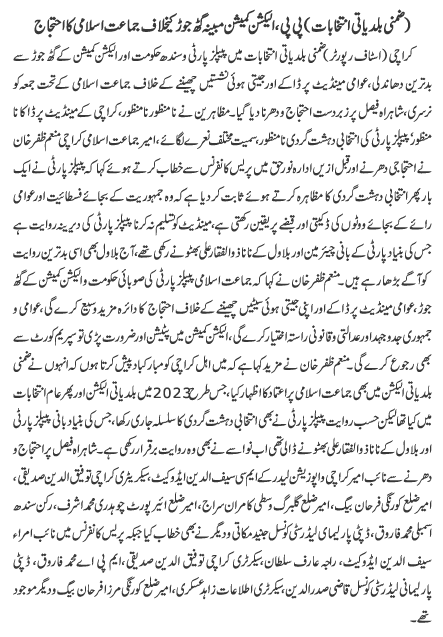 (ضمنی بلدیاتی انتخابات) پی پی، الیکشن کمیشن مبینہ گٹھ جوڑ کیخلاف جماعت اسلامی کا احتجاج
کراچی (اسٹاف رپورٹر) ضمنی بلدیاتی انتخابات میں پیپلز پارٹی و سندھ حکومت اور الیکشن کمیشن کے گٹھ جوڑ سے
بدترین دھاندلی، عوامی مینڈیٹ پر ڈاکے اور جیتی ہوئی نشستیں چھیننے کے خلاف جماعت اسلامی کے تحت جمعہ کو
نرسری، شاہراہ فیصل پر زبردست احتجاج و دھرنا دیا گیا۔ مظاہرین نے نامنظور نامنظور، کراچی کے مینڈیٹ پر ڈاکا نا
منظور، پیپلز پارٹی کی انتخابی دہشت گردی نامنظور، سمیت مختلف نعرے لگائے، امیر جماعت اسلامی کراچی منعم ظفر خان
نے احتجاجی دھرنے اور قبل ازیں ادارہ نور حق میں پریس کانفرنس سے خطاب کرتے ہوئے کہا کہ پیپلز پارٹی نے ایک
بار پھر انتخابی دہشت گردی کا مظاہرہ کرتے ہوئے ثابت کر دیا ہے کہ وہ جمہوریت کے بجائے فسطائیت اور عوامی
رائے کے بجائے ووٹوں کی ڈکیتی اور قبضے پر یقین رکھتی ہے، مینڈیٹ کو تسلیم نہ کرنا پیپلز پارٹی کی دیرینہ روایت ہے
جس کی بنیاد پارٹی کے بانی چیئرمین اور بلاول کے نانا ذوالفقار علی بھٹو نے رکھی تھی، آج بلاول بھی اسی بدترین روایت
کو آگے بڑھا رہے ہیں۔ منعم ظفر خان نے کہا کہ جماعت اسلامی پیپلز پارٹی کی صوبائی حکومت و الیکشن کمیشن کے گٹھ
جوڑ، عوامی مینڈیٹ پر ڈاکے اور اپنی جیتی ہوئی سیٹیں چھیننے کے خلاف احتجاج کا دائرہ مزید وسیع کرے گی، عوامی و
جمہوری جدوجہد اور عدالتی و قانونی راستہ اختیار کرے گی، الیکشن کمیشن میں پٹیشن اور ضرورت پڑی تو سپریم کورٹ سے
بھی رجوع کرے گی۔ منعم ظفر خان نے مزید کہا ہے کہ میں اہل کراچی کو مبارکباد پیش کرتا ہوں کہ انہوں نے ضمنی
بلدیاتی الیکشن میں بھی جماعت اسلامی پر اعتماد کا اظہار کیا، جس طرح 2023 میں بلدیاتی الیکشن اور پھر عام انتخابات
میں کیا تھا لیکن حسب روایت پیپلز پارٹی نے بھی انتخابی دہشت گردی کا سلسلہ جاری رکھا، جس کی بنیاد بانی پیپلز پارٹی
اور بلاول کے نانا ذوالفقار علی بھٹو نے ڈالی تھی اب نواسے نے بھی وہ روایت برقرار رکھی ہے۔ شاہراہ فیصل پر احتجاج و
دھرنے سے نائب امیر کراچی و اپوزیشن لیڈر کے ایم سی سیف الدین ایڈوکیٹ، سیکریٹری کراچی توفیق الدین صدیقی،
امیر ضلع کورنگی فرحان بیگ، امیر ضلع گلبرگ وسطی کامران سراج، امیر ضلع ائیرپورٹ چوہدری محمد اشرف، رکن سندھ
اسمبلی محمد فاروق، ڈپٹی پارلیمانی لیڈر سٹی کونسل جنید مکاتی و دیگر نے بھی خطاب کیا جبکہ پریس کانفرنس میں نائب امراء
سیف الدین ایڈوکیٹ، راجہ عارف سلطان، سیکرٹری کراچی توفیق الدین صدیقی، ایم پی اے محمد فاروق، ڈپٹی
پارلیمانی لیڈر سٹی کونسل قاضی صدر الدین، سیکرٹری اطلاعات زاہد عسکری، امیر ضلع کورنگی مرزا فرحان بیگ و دیگر موجود
تھے۔